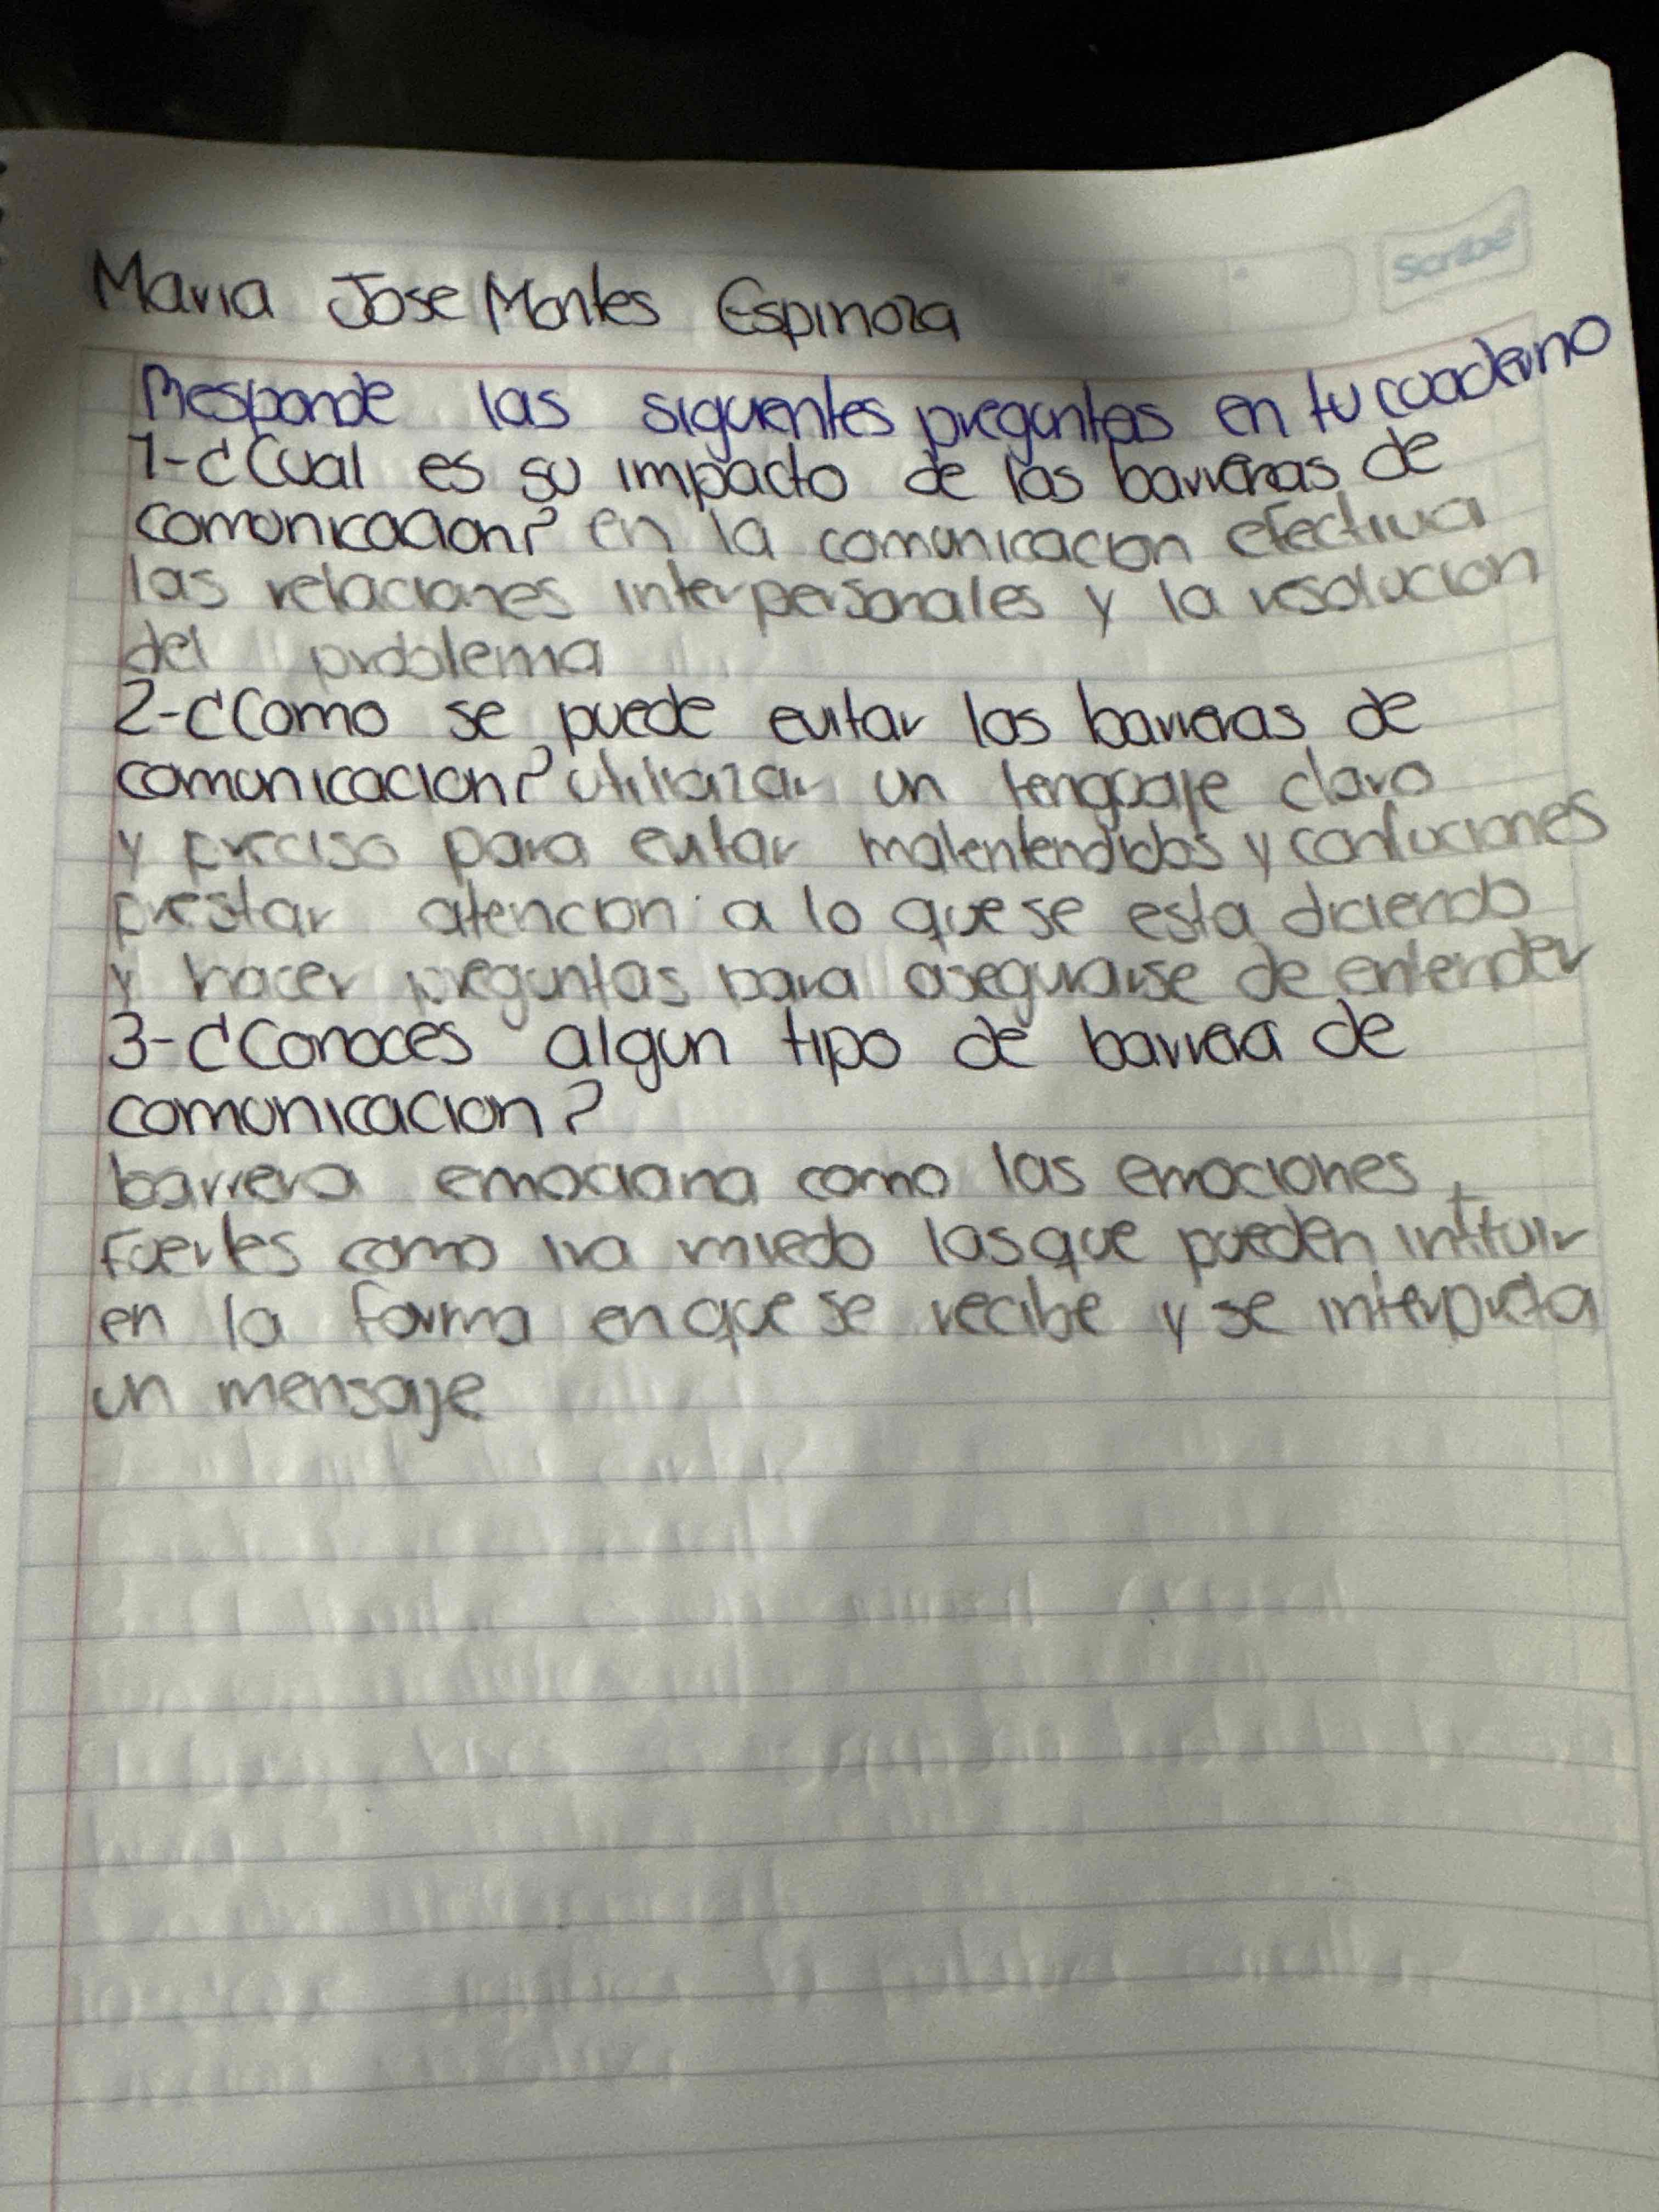 Scribe
Maria Jose Montes Espinoza
Responde las siguientes preguntas en tu cuaderno
1-¿Cual es su impacto de las barreras de
comunicacion? en la comunicacion efectiva
las relaciones interpersonales y la resolucion
del problema
2-¿Como se puede evitar las barreras de
comunicacion? un lenguaje claro
y preciso para evitar malentendidos y confuciones
prestar atencion a lo que se esta diciendo
y hacer preguntas para asegurarse de entender
3-¿Conoces algun tipo de barrera de
comunicacion?
barrera emociona como las emociones
fuertes como ira miedo las que pueden
en la forma en que se recibe y se interpreta
un mensaje